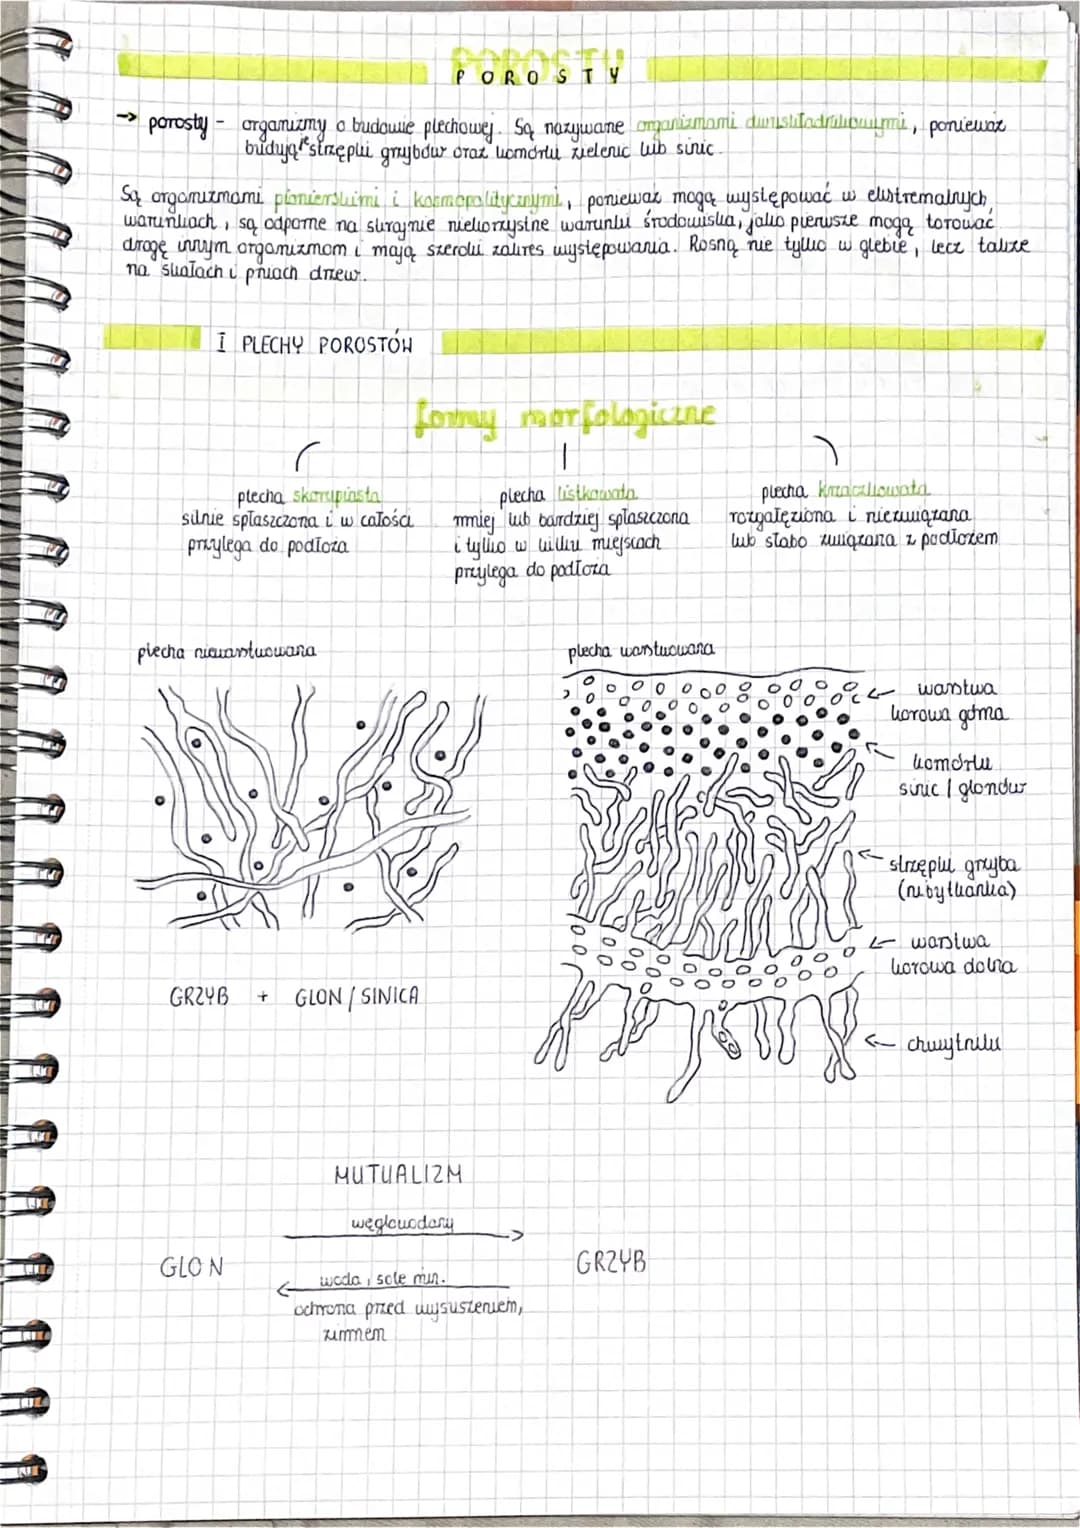 POROSTY
→ porosty - organizmy o budowie plechowej. Są nazywane organizmami dwuskładnikowymi, ponieważ
budują je strzępki grzybów oraz komórki zielenic lub sinic.
Są organizmami pionierskimi i kosmopolitycznymi, ponieważ mogą występować w ekstremalnych
warunkach, są odporne na skrajnie niekorzystne warunki środowiska, jako pierwsze mogą torować
drogę innym organizmom i mają szeroki zakres występowania. Rosną nie tylko w glebie, lecz także
na skałach i pniach drzew.
I PLECHY POROSTÓW
formy morfologiczne
plecha skorupiasta
silnie spłaszczona i w całości
przylega do podłoża
plecha listkowata
mniej lub bardziej spłaszczona
i tylko w kilku miejscach
przylega do podłoża
plecha krzaczkowata
rozgałęziona i niezwiązana
lub słabo związana z podłożem
plecha niewarstwowana
GRZYB + GLON / SINICA
plecha warstwowana
warstwa
korowa górna
komórki
sinic / glonów
strzępki grzyba
(nibytkanka)
warstwa
korowa dolna
chwytniki
MUTUALIZM
węglowodany
GLON
GRZYB
woda i sole min.
ochrona przed wysuszeniem,
zimnem